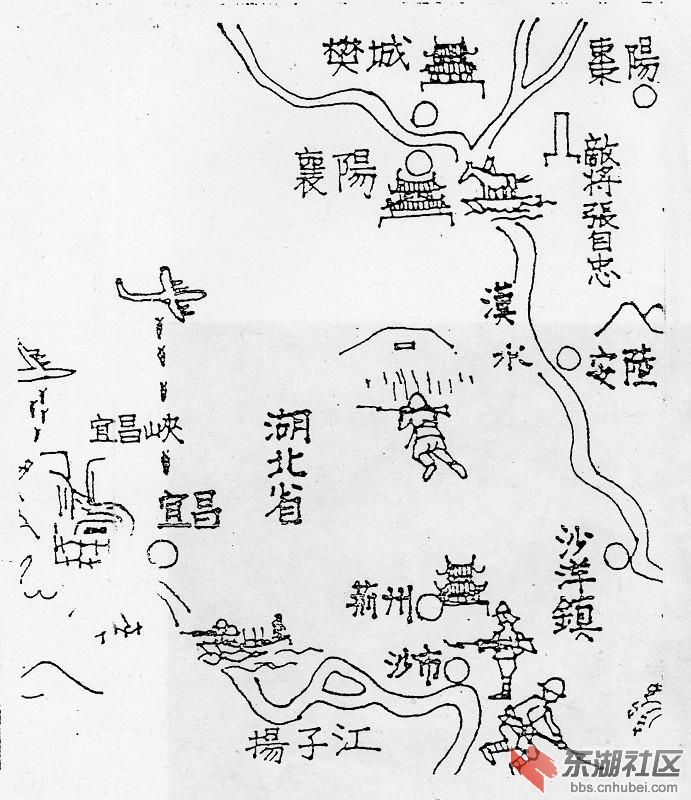 樊城
棗陽
襄陽
敵将張自忠
漢水
安陸
宜昌峡
湖北省
宜昌
沙洋鎮
荊州
沙市
揚子江
东湖社区
bbs.cnhubei.com